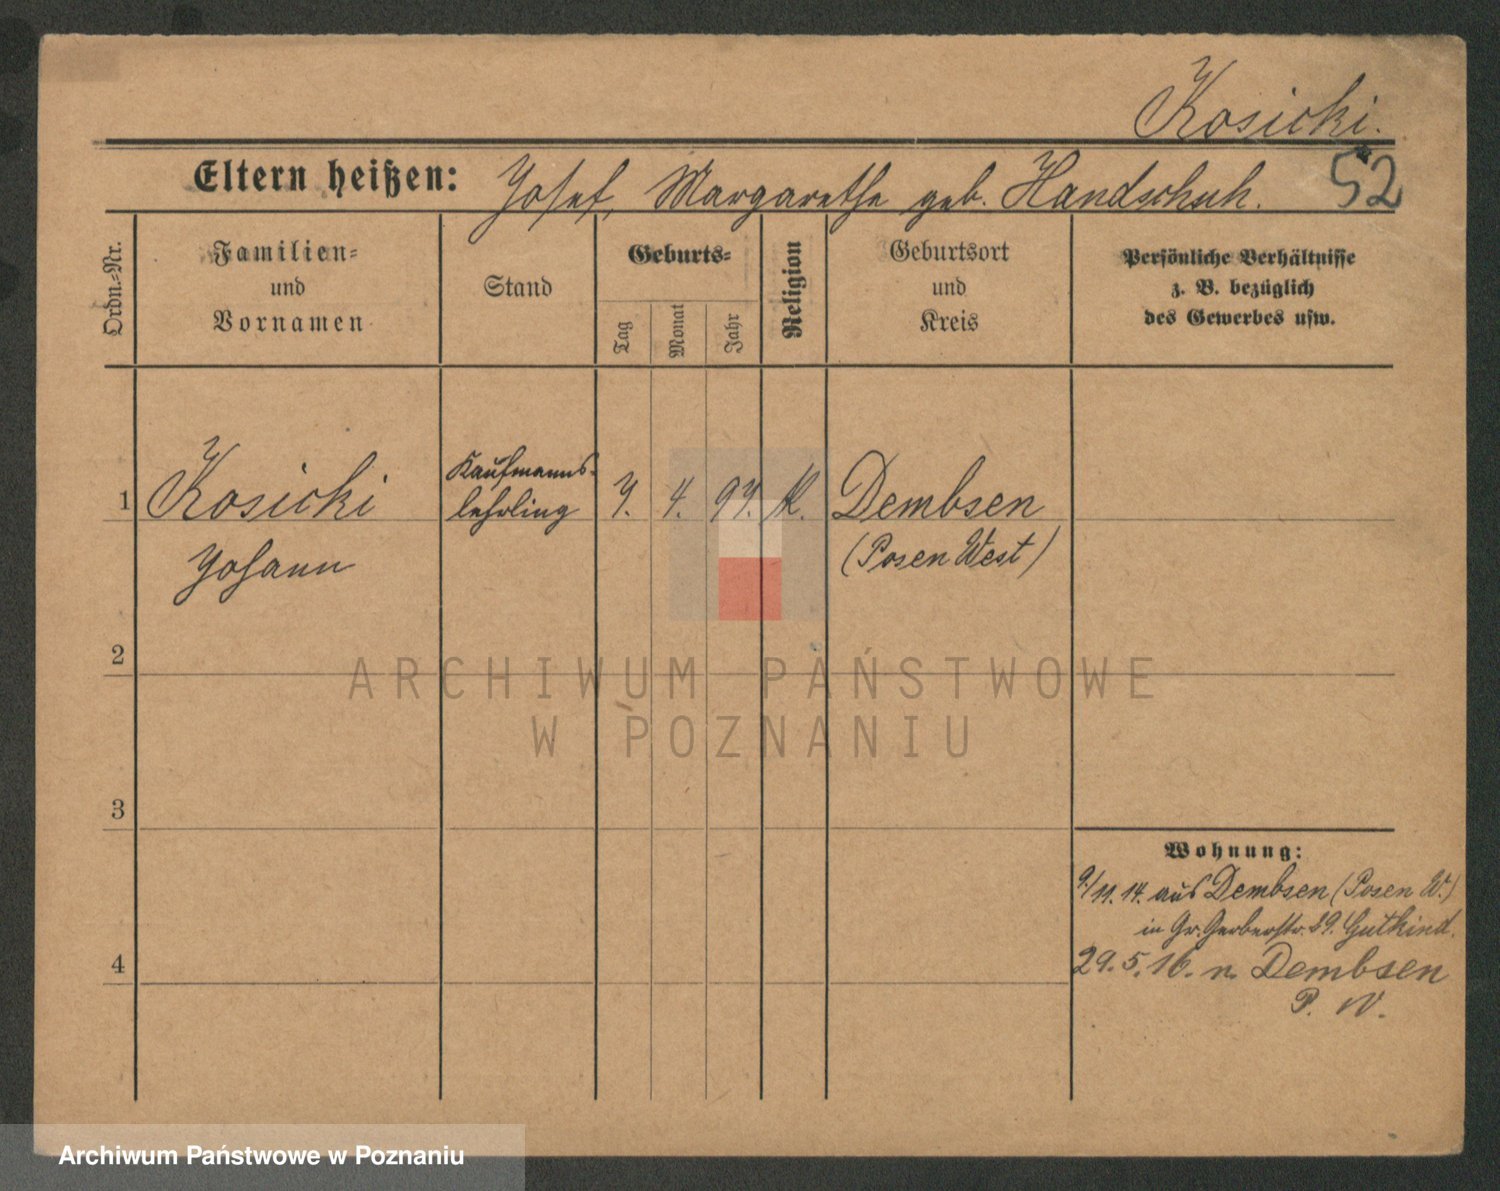 Kosicki.
52
Eltern heißen: Josef, Margarethe geb. Handschuh.
Ordn.-Nr.
Familien-
und
Vornamen
Stand
Geburts-
Tag
Monat
Jahr
Religion
Geburtsort
und
Kreis
Persönliche Verhältnisse
z. B. bezüglich
des Gewerbes usw.
1 Kosicki
Johann
Kaufmanns-
lehrling
7. 4. 97. K. Dembsen
(Posen West)
2
ARCHIWUM PAŃSTWOWE
W POZNANIU
3
Wohnung:
9./11. 14. aus Dembsen (Posen W.)
in Gr. Gerberstr. 39. Gutkind.
4
29. 5. 16. n. Dembsen
P. W.
Archiwum Państwowe w Poznaniu